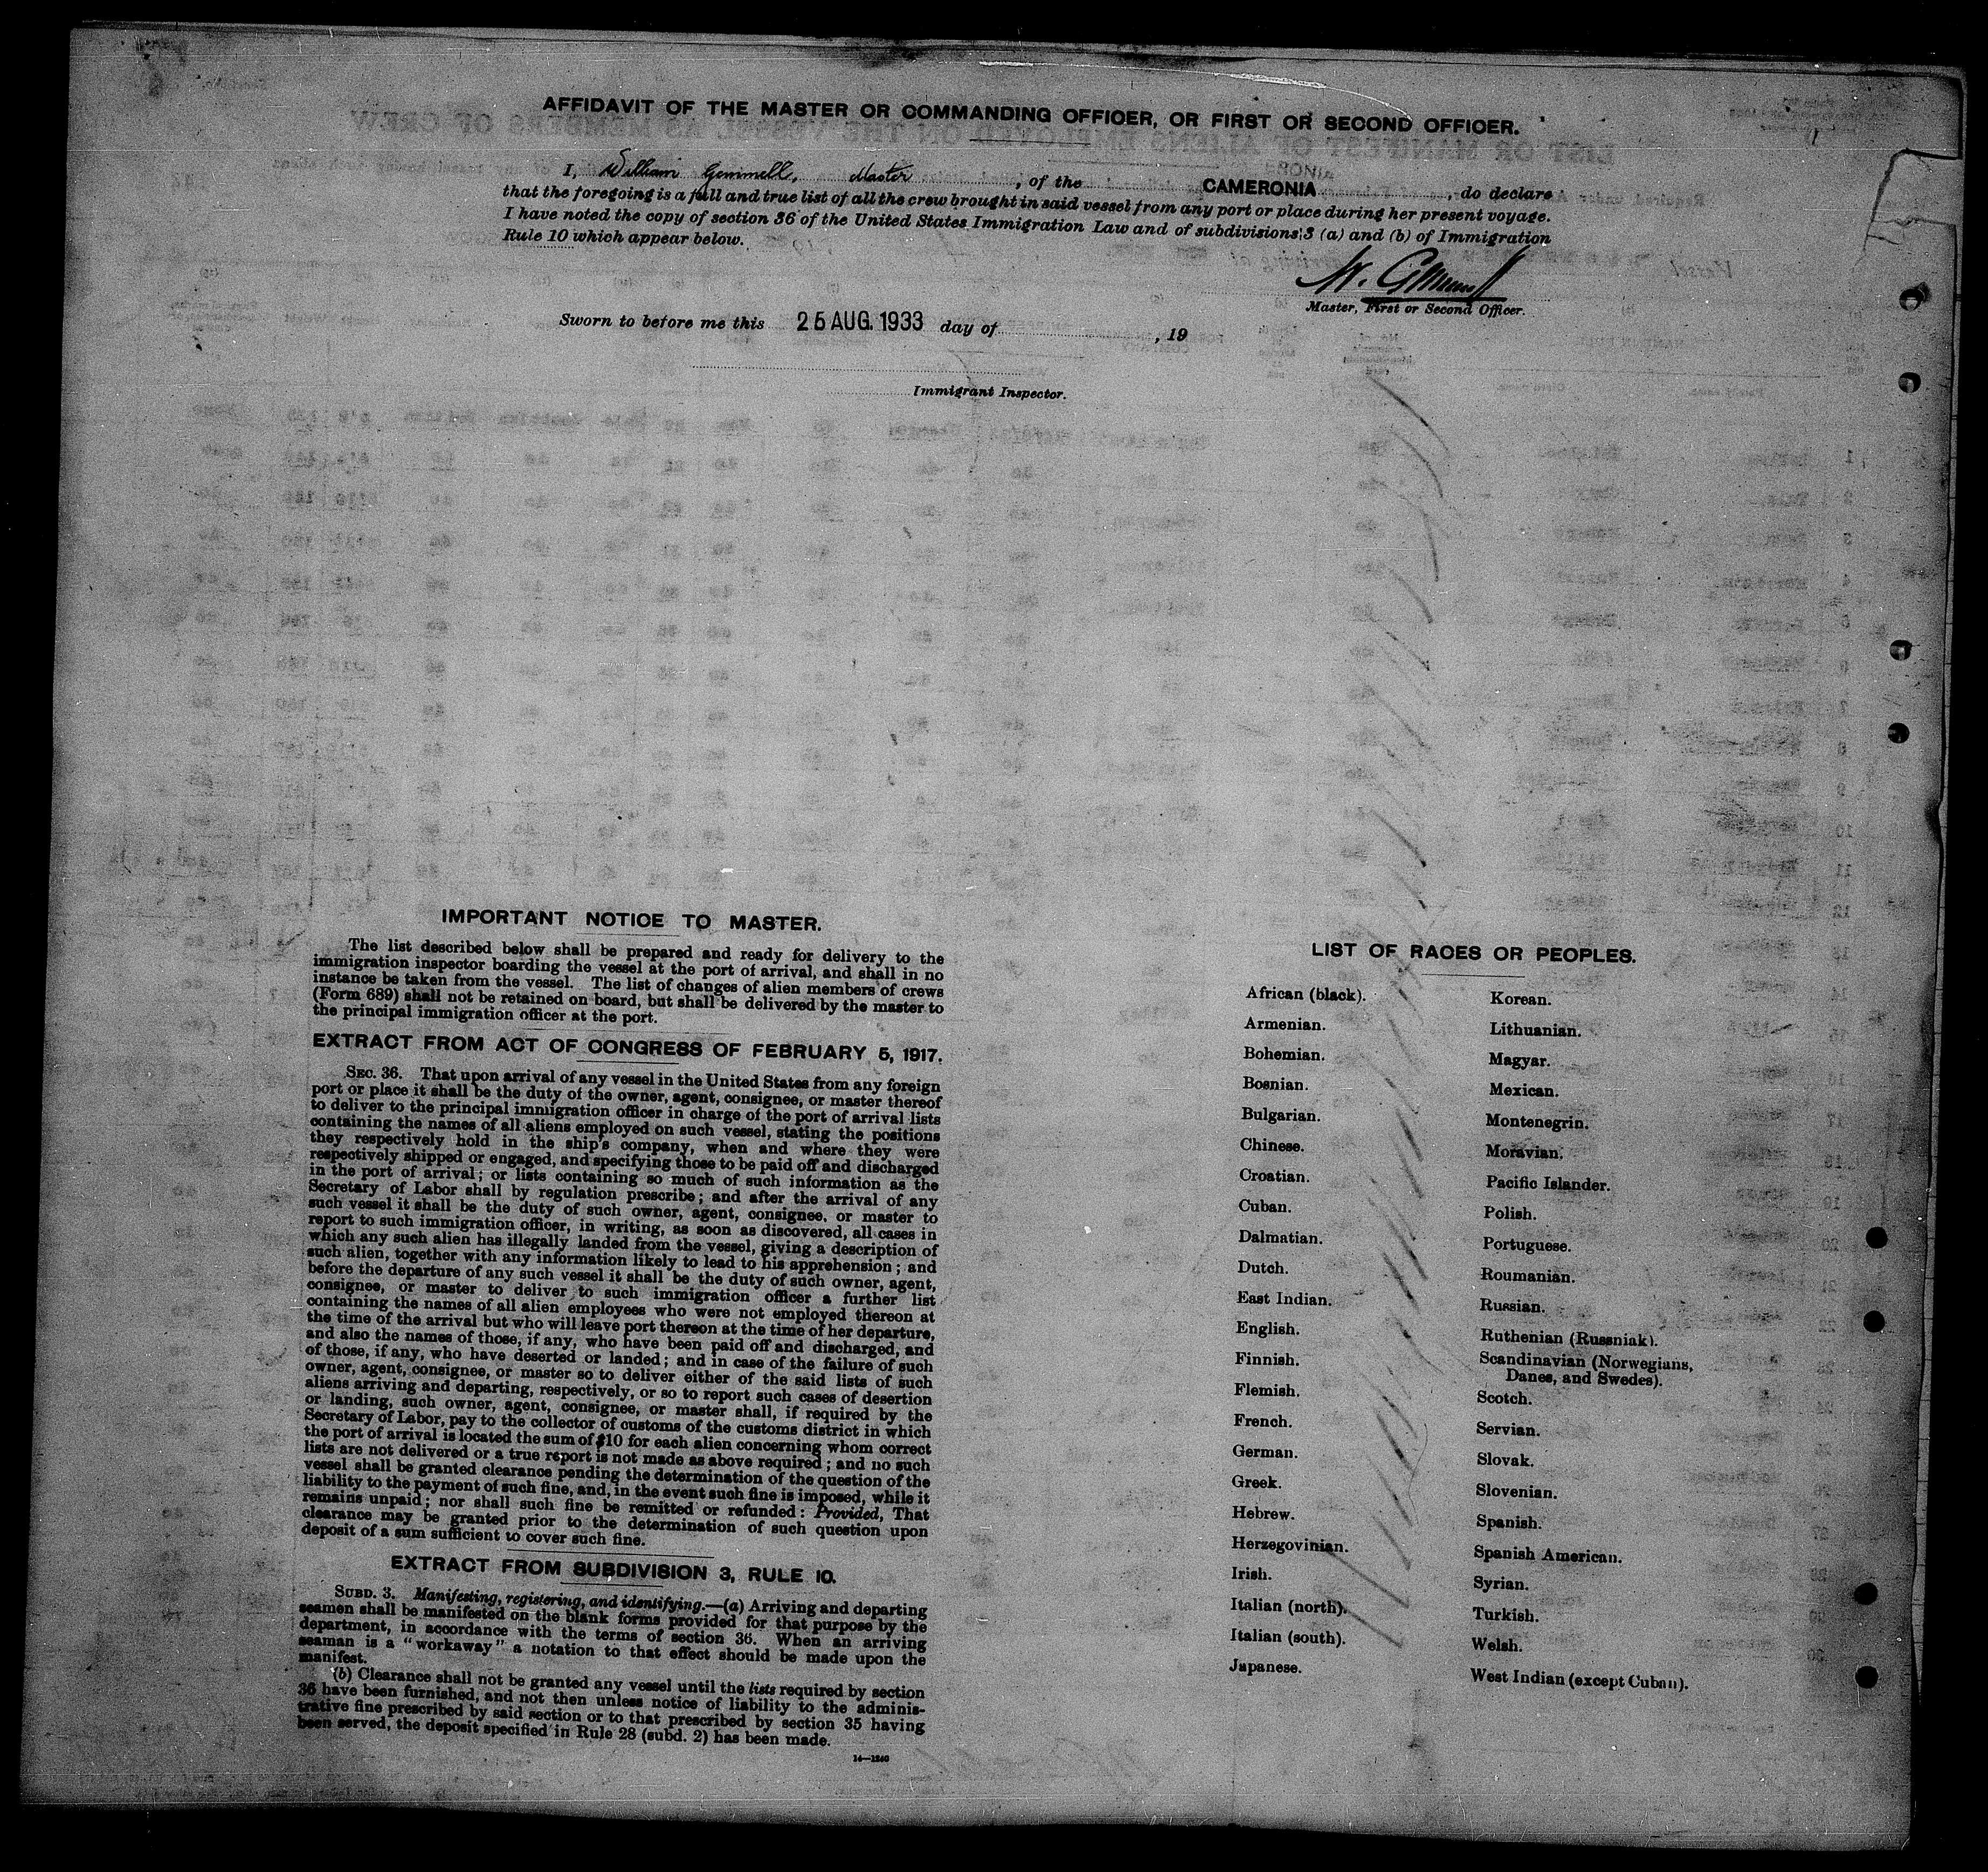 AFFIDAVIT OF THE MASTER OR COMMANDING OFFICER, OR FIRST OR SECOND OFFICER.
I, William Gemmell, Master, of the CAMERONIA, do declare
that the foregoing is a full and true list of all the crew brought in said vessel from any port or place during her present voyage.
I have noted the copy of section 36 of the United States Immigration Law and of subdivisions 3 (a) and (b) of Immigration
Rule 10 which appear below.
W. Gemmell
Master, First or Second Officer.
Sworn to before me this 25 AUG. 1933 day of , 19
Immigrant Inspector.
IMPORTANT NOTICE TO MASTER.
The list described below shall be prepared and ready for delivery to the
immigration inspector boarding the vessel at the port of arrival, and shall in no
instance be taken from the vessel. The list of changes of alien members of crews
(Form 689) shall not be retained on board, but shall be delivered by the master to
the principal immigration officer at the port.
EXTRACT FROM ACT OF CONGRESS OF FEBRUARY 5, 1917.
SEC. 36. That upon arrival of any vessel in the United States from any foreign
port or place it shall be the duty of the owner, agent, consignee, or master thereof
to deliver to the principal immigration officer in charge of the port of arrival lists
containing the names of all aliens employed on such vessel, stating the positions
they respectively hold in the ship's company, when and where they were
respectively shipped or engaged, and specifying those to be paid off and discharged
in the port of arrival; or lists containing so much of such information as the
Secretary of Labor shall by regulation prescribe; and after the arrival of any
such vessel it shall be the duty of such owner, agent, consignee, or master to
report to such immigration officer, in writing, as soon as discovered, all cases in
which any such alien has illegally landed from the vessel, giving a description of
such alien, together with any information likely to lead to his apprehension; and
before the departure of any such vessel it shall be the duty of such owner, agent,
consignee, or master to deliver to such immigration officer a further list
containing the names of all alien employees who were not employed thereon at
the time of the arrival but who will leave port thereon at the time of her departure,
and also the names of those, if any, who have been paid off and discharged, and
of those, if any, who have deserted or landed; and in case of the failure of such
owner, agent, consignee, or master so to deliver either of the said lists of such
aliens arriving and departing, respectively, or so to report such cases of desertion
or landing, such owner, agent, consignee, or master shall, if required by the
Secretary of Labor, pay to the collector of customs of the customs district in which
the port of arrival is located the sum of $10 for each alien concerning whom correct
lists are not delivered or a true report is not made as above required; and no such
vessel shall be granted clearance pending the determination of the question of the
liability to the payment of such fine, and, in the event such fine is imposed, while it
remains unpaid; nor shall such fine be remitted or refunded: Provided, That
clearance may be granted prior to the determination of such question upon
deposit of a sum sufficient to cover such fine.
EXTRACT FROM SUBDIVISION 3, RULE 10.
SUBD. 3. Manifesting, registering, and identifying.—(a) Arriving and departing
seamen shall be manifested on the blank forms provided for that purpose by the
department, in accordance with the terms of section 36. When an arriving
seaman is a "workaway" a notation to that effect should be made upon the
manifest.
(b) Clearance shall not be granted any vessel until the lists required by section
36 have been furnished, and not then unless notice of liability to the adminis-
trative fine prescribed by said section or to that prescribed by section 35 having
been served, the deposit specified in Rule 28 (subd. 2) has been made.
14—1240
LIST OF RACES OR PEOPLES.
African (black).
Armenian.
Bohemian.
Bosnian.
Bulgarian.
Chinese.
Croatian.
Cuban.
Dalmatian.
Dutch.
East Indian.
English.
Finnish.
Flemish.
French.
German.
Greek.
Hebrew.
Herzegovinian.
Irish.
Italian (north).
Italian (south).
Japanese.
Korean.
Lithuanian.
Magyar.
Mexican.
Montenegrin.
Moravian.
Pacific Islander.
Polish.
Portuguese.
Roumanian.
Russian.
Ruthenian (Russniak).
Scandinavian (Norwegians,
Danes, and Swedes).
Scotch.
Servian.
Slovak.
Slovenian.
Spanish.
Spanish American.
Syrian.
Turkish.
Welsh.
West Indian (except Cuban).